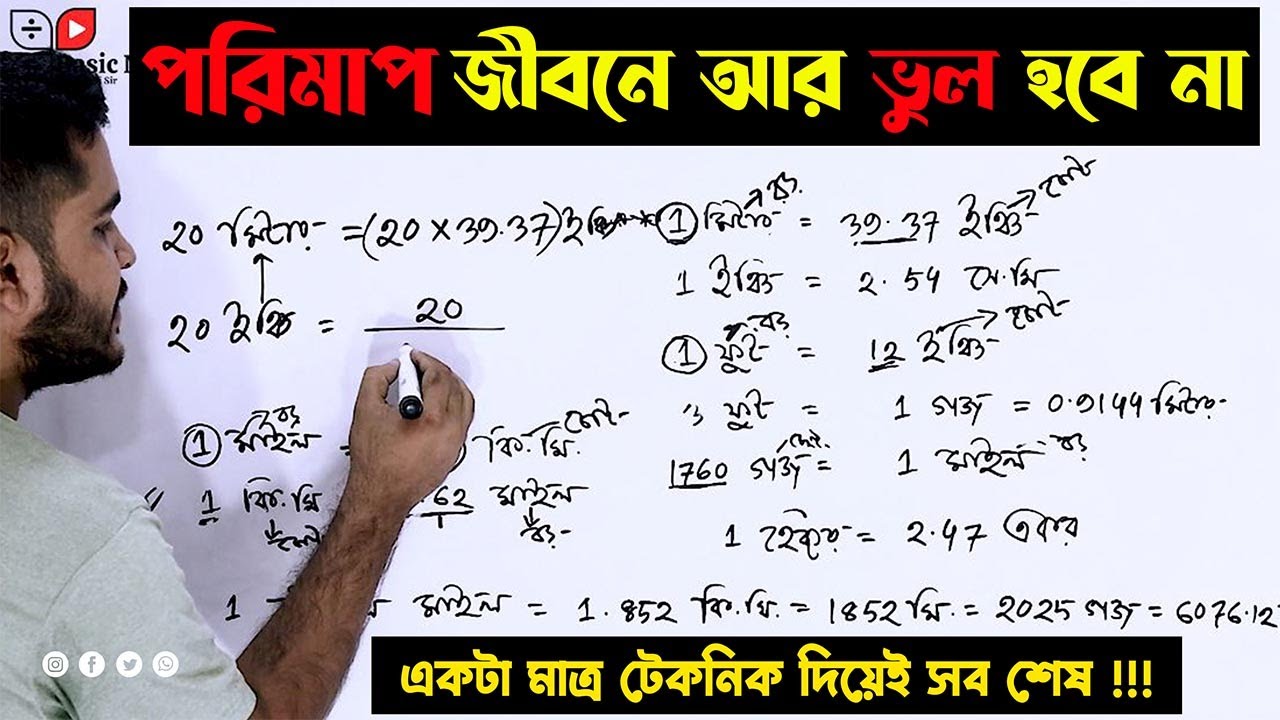 পরিমাপ জীবনে আর ভুল হবে না
sic
Sir
20 মিটার = (20 × 39.37) ইঞ্চি
20 ইঞ্চি = 20
1 মিটার → বড় = 39.37 ইঞ্চি → ছোট
1 ইঞ্চি = 2.54 সে.মি
1 ফুট → বড় = 12 ইঞ্চি → ছোট
3 ফুট = 1 গজ = 0.9144 মিটার
1760 গজ = 1 মাইল বড়
1 হেক্টর = 2.47 একর
1 মাইল → বড় = কি.মি. ছোট
1 কি.মি .62 মাইল
ছোট বড়
1 মাইল = 1.852 কি.মি. = 1852 মি. = 2025 গজ = 6076.12
একটা মাত্র টেকনিক দিয়েই সব শেষ !!!